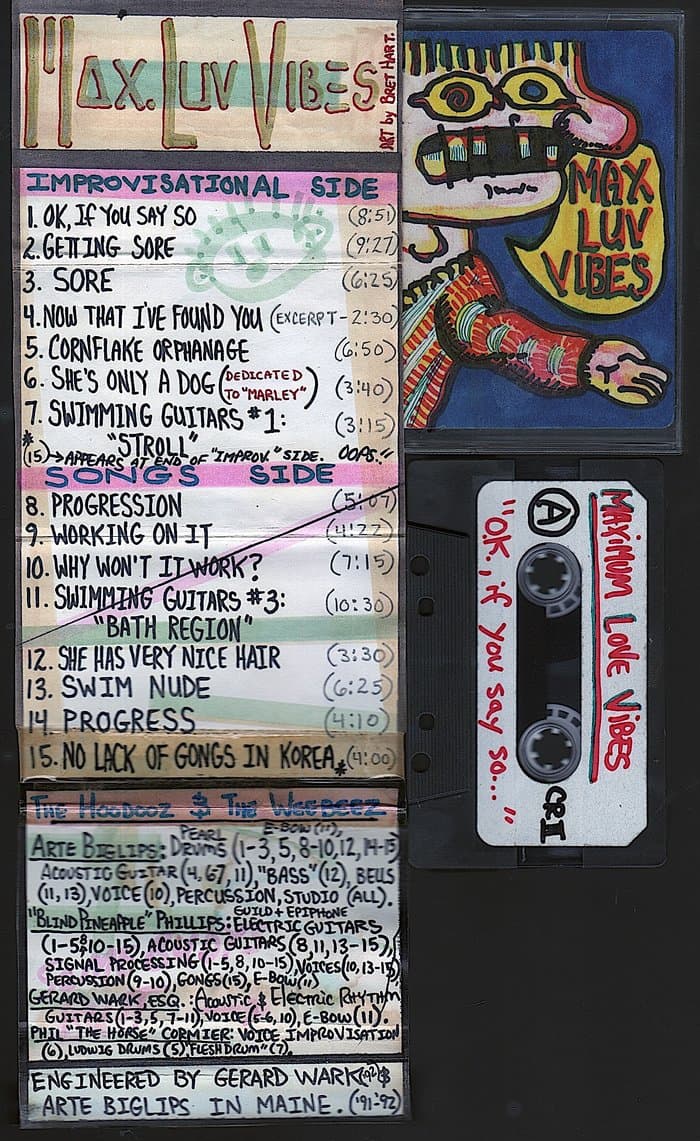 MAX. LUV VIBES
ART by BRET HART.
IMPROVISATIONAL SIDE
1. OK, IF YOU SAY SO (8:51)
2. GETTING SORE (9:27)
3. SORE (6:25)
4. NOW THAT I'VE FOUND YOU (EXCERPT - 2:30)
5. CORNFLAKE ORPHANAGE (6:50)
6. SHE'S ONLY A DOG (DEDICATED TO "MARLEY") (3:40)
7. SWIMMING GUITARS #1: (3:15)
"STROLL"
* (15) → APPEARS AT END OF "IMPROV." SIDE. OOPS!!
SONGS SIDE
8. PROGRESSION (5:07)
9. WORKING ON IT (4:22)
10. WHY WON'T IT WORK? (7:15)
11. SWIMMING GUITARS #3: (10:30)
"BATH REGION"
12. SHE HAS VERY NICE HAIR (3:30)
13. SWIM NUDE (6:25)
14. PROGRESS (4:10)
15. NO LACK OF GONGS IN KOREA * (4:00)
THE HOODOOZ & THE WEEBEEZ
ARTE BIGLIPS: PEARL DRUMS (1-3, 5, 8-10, 12, 14-15) E-BOW (11),
ACOUSTIC GUITAR (4, 67, 11), "BASS" (12), BELLS
(11, 13), VOICE (10), PERCUSSION, STUDIO (ALL).
"BLIND PINEAPPLE" PHILLIPS: GUILD + EPIPHONE ELECTRIC GUITARS
(1-5 & 10-15), ACOUSTIC GUITARS (8, 11, 13-15),
SIGNAL PROCESSING (1-5, 8, 10-15), VOICES (10, 13-15)
PERCUSSION (9-10), GONGS (15), E-BOW (11)
GERARD WARK, ESQ.: ACOUSTIC & ELECTRIC RHYTHM
GUITARS (1-3, 5, 7-11), VOICE (5-6, 10), E-BOW (11).
PHIL "THE HORSE" CORMIER: VOICE IMPROVISATION
(6), LUDWIG DRUMS (5) "FLESH DRUM" (7).
ENGINEERED BY GERARD WARK ('92) &
ARTE BIGLIPS IN MAINE. ('91-'92)
MAX
LUV
VIBES
A
MAXIMUM LOVE VIBES
"OK, if you say so..."
CR II